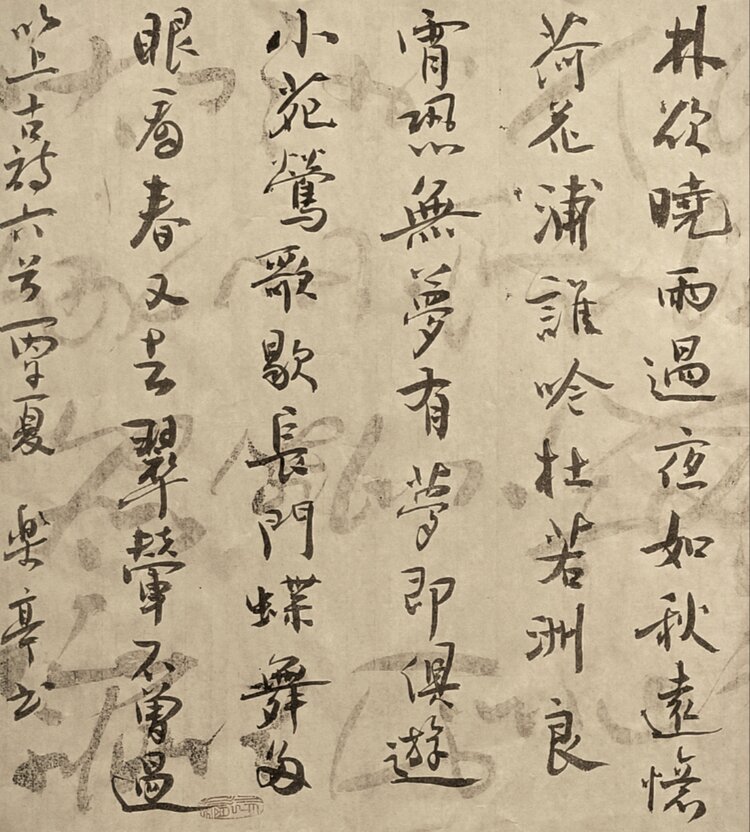 林欲曉雨過夜如秋遠憶
荷花浦誰吟杜若洲良
宵恐無夢有夢即俱遊
小苑鶯歌歇長門蝶舞多
眼看春又去翠輦不曾過
以上古詩六首丙子夏 楽亭书